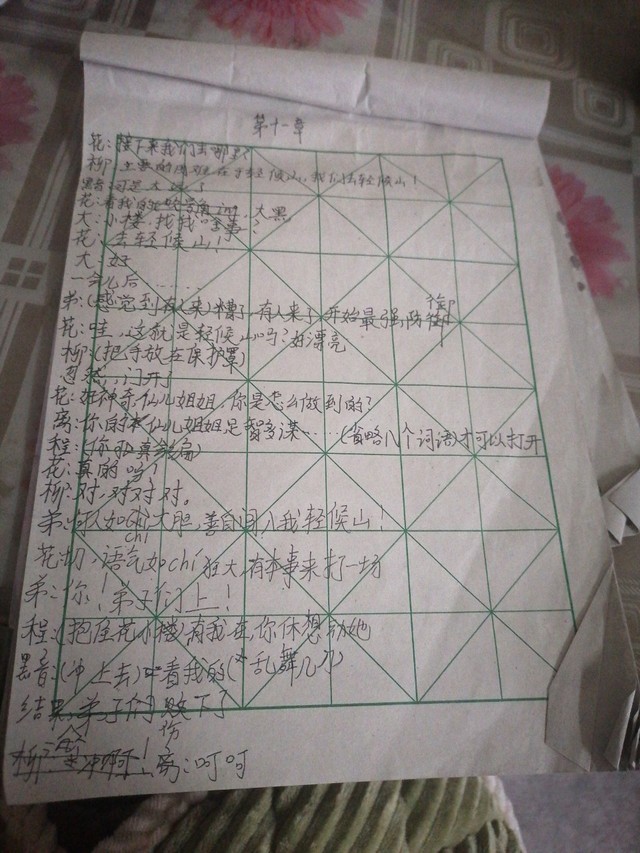 第十一章
花:接下来我们去哪里?
柳:主要的 在于轻候山,我们去轻候山!
花:看我的 ,大黑
大:小楼,找我 事?
花:去轻候山!
大:好
一会儿后……
弟:(感觉到有人来)糟了,有人来了,开始最强防御
花:哇,这就是轻候山吗?好漂亮
柳:(把手放在保护罩)
忽然,门开了
花:好神奇仙儿姐姐,你是怎么做到的?
离:你的本仙儿姐姐足智多谋……(省略八个词语)才可以打开
程:(你 真会编)
花:真的吗?
柳:对,对对对。
弟:何人如此大胆,善自闯入我轻候山!
花:切,语气如chǐ chí狂大,有本事来打一场
弟:你!弟子们上!
程:(抱住花小楼)有我在,你休想动她
黑音:(冲上去)看我的(乱舞几刀)
结果,弟子们败下了
份
柳: 冲啊!离:呵呵